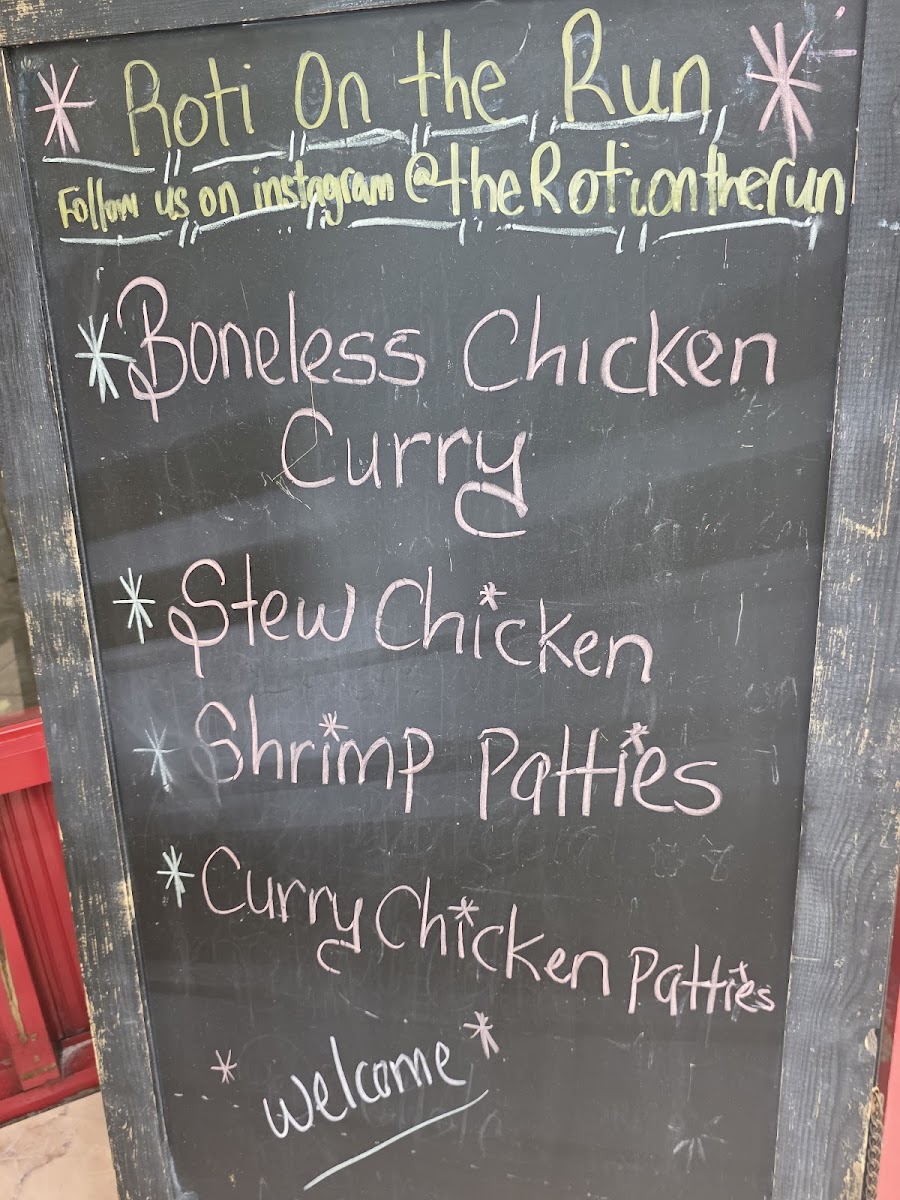 * Roti On the Run *
Follow us on instagram @theRotiontherun
* Boneless Chicken
Curry
* Stew Chicken
* Shrimp Patties
* Curry Chicken Patties
* welcome *